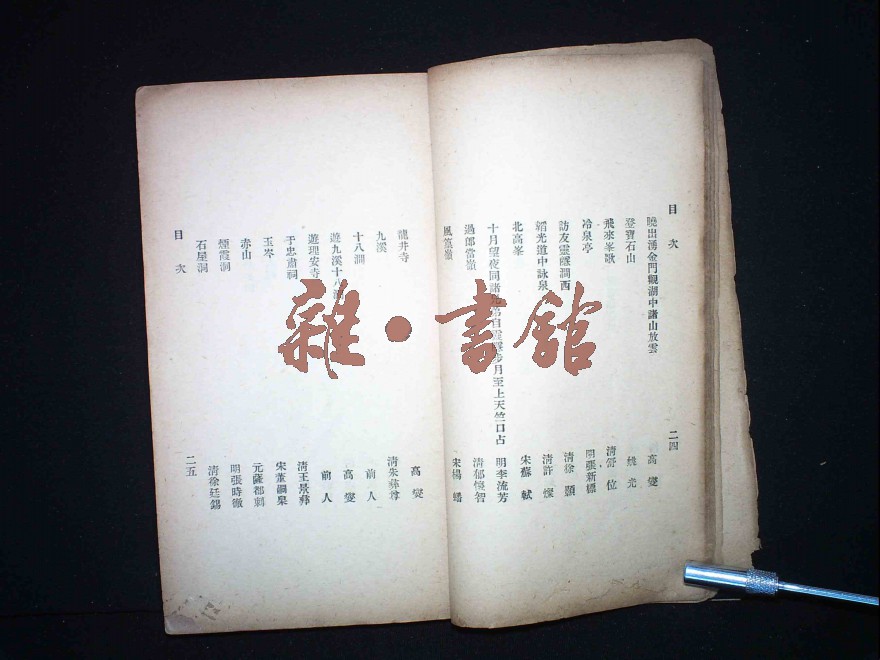 目次
二四
曉出湧金門觀湖中諸山放雲 高燮
登寶石山 姚光
飛來峯歌 清舒位
冷泉亭 明張新標
訪友靈隱澗西 清徐顥
韜光道中詠泉 清許燦
北高峯 宋蘇軾
十月望夜同諸兄弟自靈隱步月至上天竺口占 明李流芳
過郎當嶺 清郁懷智
風篁嶺 宋楊蟠
龍井寺 高燮
九溪 清朱彝尊
十八澗 前人
遊九溪十八澗 高燮
遊理安寺 前人
于忠肅祠 清王景彝
玉岑 宋董嗣杲
赤山 元薩都剌
煙霞洞 明張時徹
石屋洞 清徐廷錫
目次
二五
雜·書館